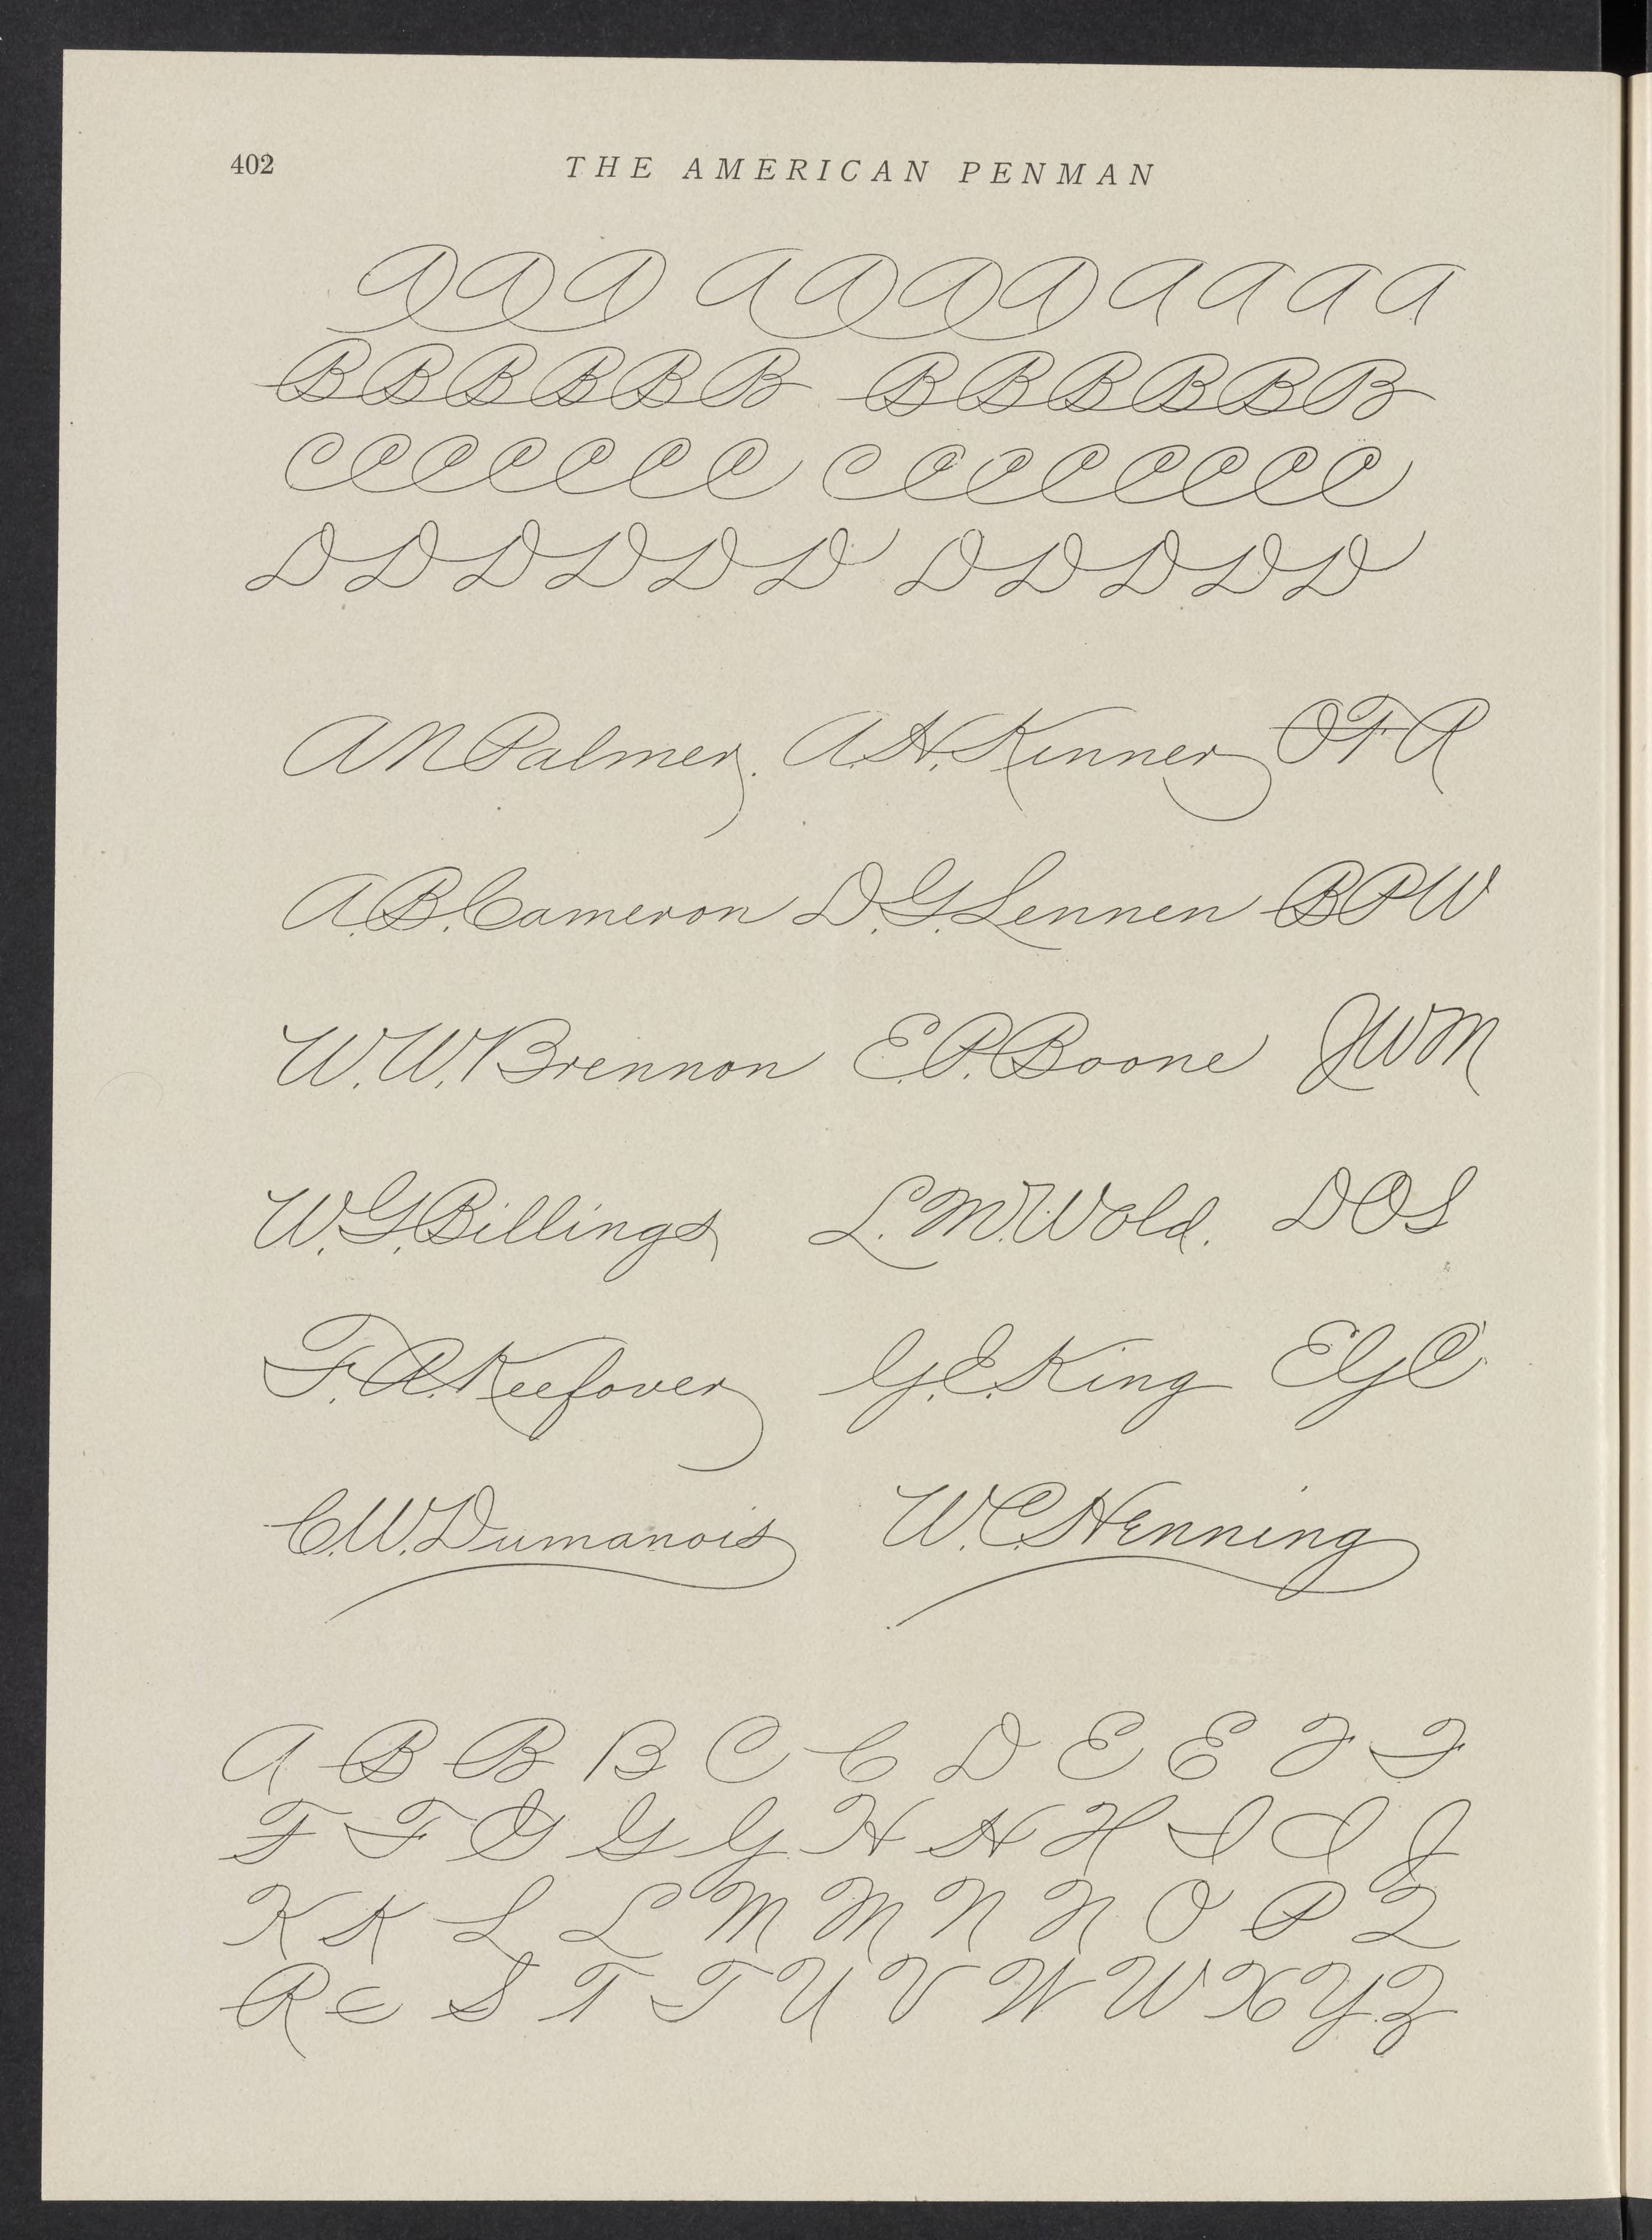 402 THE AMERICAN PENMAN
A A A A A A A A A A A
B B B B B B B B B B B B
C C C C C C C C C C C C C C
D D D D D D D D D D D
A N Palmer. A. H. Kenner O F R
A. B. Cameron D. G. Lennen B P W
W. W. Brennon E. P. Boone J W M
W. G. Billings L. M. Wold. D O S
F. R. Keefover G. E. King E G C
C. W. Dumanois W. C. Henning
A B B B C C D E E F F
F F G G G H H H I I J
K K L L M M N N O P Q
R S T T U V W W X Y Z